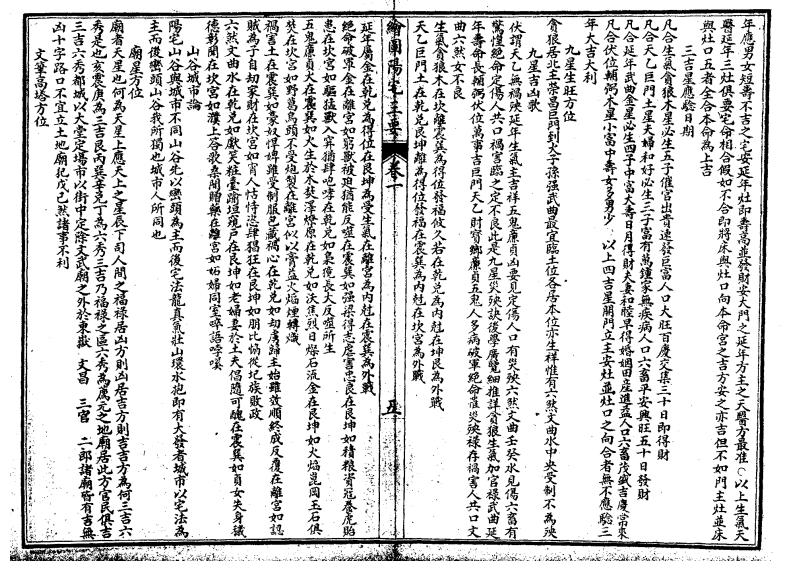 年應男女短壽不吉之宅安延年灶即壽高並發財安大門之延年方主之天醫方最准○以上生氣天
醫延年三灶俱要宅命相合假如不合即將床與灶口向本命宮之吉方安之亦吉但不如門主灶並床
與灶口五者全合本命為上吉
三吉星應騐日期
凡合生氣貪狼木星必生五子催官出貴速發巨富人口大旺百慶交集三十日即得財
凡合天乙巨門土星夫婦和好必生三子富有萬鍾家無疾病人口六畜平安興旺五十日發財
凡合延年武曲金星必生四子中富大壽日月得財夫妻和睦早得婚姻田產進益人口六畜茂盛吉慶常來
凡合伏位輔弼木星小富中壽女多男少 以上四吉星開門立主安灶並灶口之向合者無不應騐三
年大吉大利
九星生旺方位
貪狼居北主榮昌巨門到火子孫强武曲最宜臨土位各居本位亦生祥惟有六煞文曲水中央受制不為殃
九星吉凶歌
伏謂天乙無禍殃延年生氣主吉祥五鬼廉貞凶要見定傷人口有災殃六煞文曲壬癸水見傷六畜有
驚惶絕命定傷人共口禍害臨之定不良此是九星災殃訣後學廣覽細推詳貪狼生氣加官祿武曲延
年壽命長輔弼伏位萬事吉巨門天乙財寶鄉廉貞五鬼人多病破軍絕命罹災殃祿存禍害人共口文
曲六煞女不良
生氣貪狼木在坎離震巽為得位發福攸久若在乾兌為內尅在坤艮為外戰
天乙巨門土在乾兌艮坤離為得位發福在震巽為內尅在坎宮為外戰
繪圖陽宅三要 卷一
延年屬金在乾兌為得位在艮坤為受生氣在離宮為內尅在震巽為外戰
絕命破軍金在離宮如窮獸被廹猶能反噬在震巽如强梁得志虐害忠良在艮坤如積糧資冦養虎貽
患在坎宮如驅猛獸入穽猶肆咆哮在乾兌如梟獍長大反噬所生
五鬼廉貞火在震巽如火生於木發澤燎原在乾兌如沃焦烈日燥石流金在艮坤如火焰崑岡玉石俱
焚在坎宮如野葛烏頭不受炮製在離宮以火膏益火焰煙轉熾
禍害土在震巽如豪奴悍婢雖受制服包藏禍心在乾兌如刼虜歸主始雖效順終成反覆在離宮如認
賊為子自刼家財在坎宮如宵人恃恃恣肆猖狂在艮坤如朋比惝從圮族敗政
六煞文曲水在乾兌如獻笑粧臺踰垣窺戶在艮坤如老婦妻於士夫偶隨可醜在震巽如貞女失身穢
德彰聞在坎宮如濮上答歌桑間贈藥在離宮如妬婦同室啐語呼嗟
山谷城市論
陽宅山谷與城市不同山谷先以巒頭為主而後宅法龍真氣壯山環水抱即有大發者城市以宅法為
主而後巒頭山谷我所獨也城市人所同也
廟星方位
廟者天星也何為天星上應天上之星辰下司人間之福祿居凶方則凶居吉方則吉吉方為何三吉六
秀是也亥震庚為三吉艮丙巽辛兌丁為六秀三吉乃福祿之區六秀為薦元之地廟居此方官民俱吉
三吉六秀都城以大堂定塲市以街中定除文武廟之外於東嶽 文昌 三宮 二郎諸廟皆有吉無
凶十字路口不宜立土地廟犯戊己煞諸事不利
文筆高塔方位